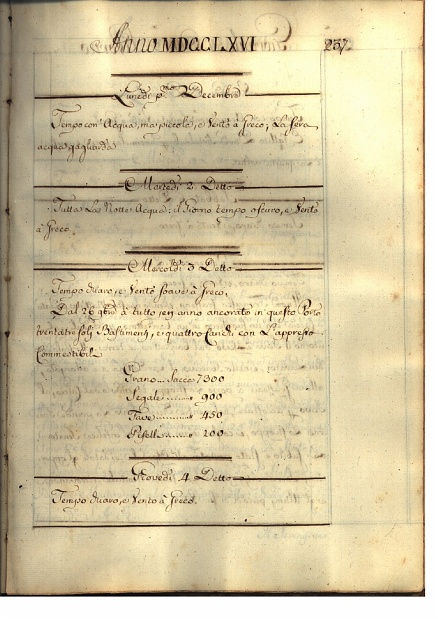 Anno MDCCLXVI
237.
Lunedi pmo Decembre
Tempo con Acqua, ma piccola, e Vento à Greco; La sera
acqua gagliarda
Martedi 2. Detto
Tutta La Notte Acqua: il Giorno tempo oscuro, e Vento
à Greco.
Mercoldi 3 Detto
Tempo chiaro, e Vento soave à Greco.
Dal 26 9bre à tutto jeri anno ancorato in questo Porto
trentatre soli Bastimenti, e quattro con L'appresso
Commestibili
Grano... Sacca 7300
Segale ...... 900
Fave ...... 450
Piselli ...... 200
Giovedi 4 Detto
Tempo chiaro, e Vento à Greco.